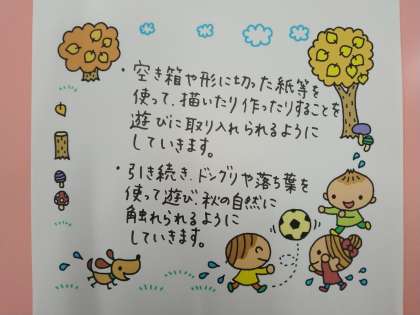 ・空き箱や形に切った紙等を
使って、描いたり作ったりすることを
遊びに取り入れられるように
していきます。
・引き続き、ドングリや落ち葉を
使って遊び、秋の自然に
触れられるように
していきます。